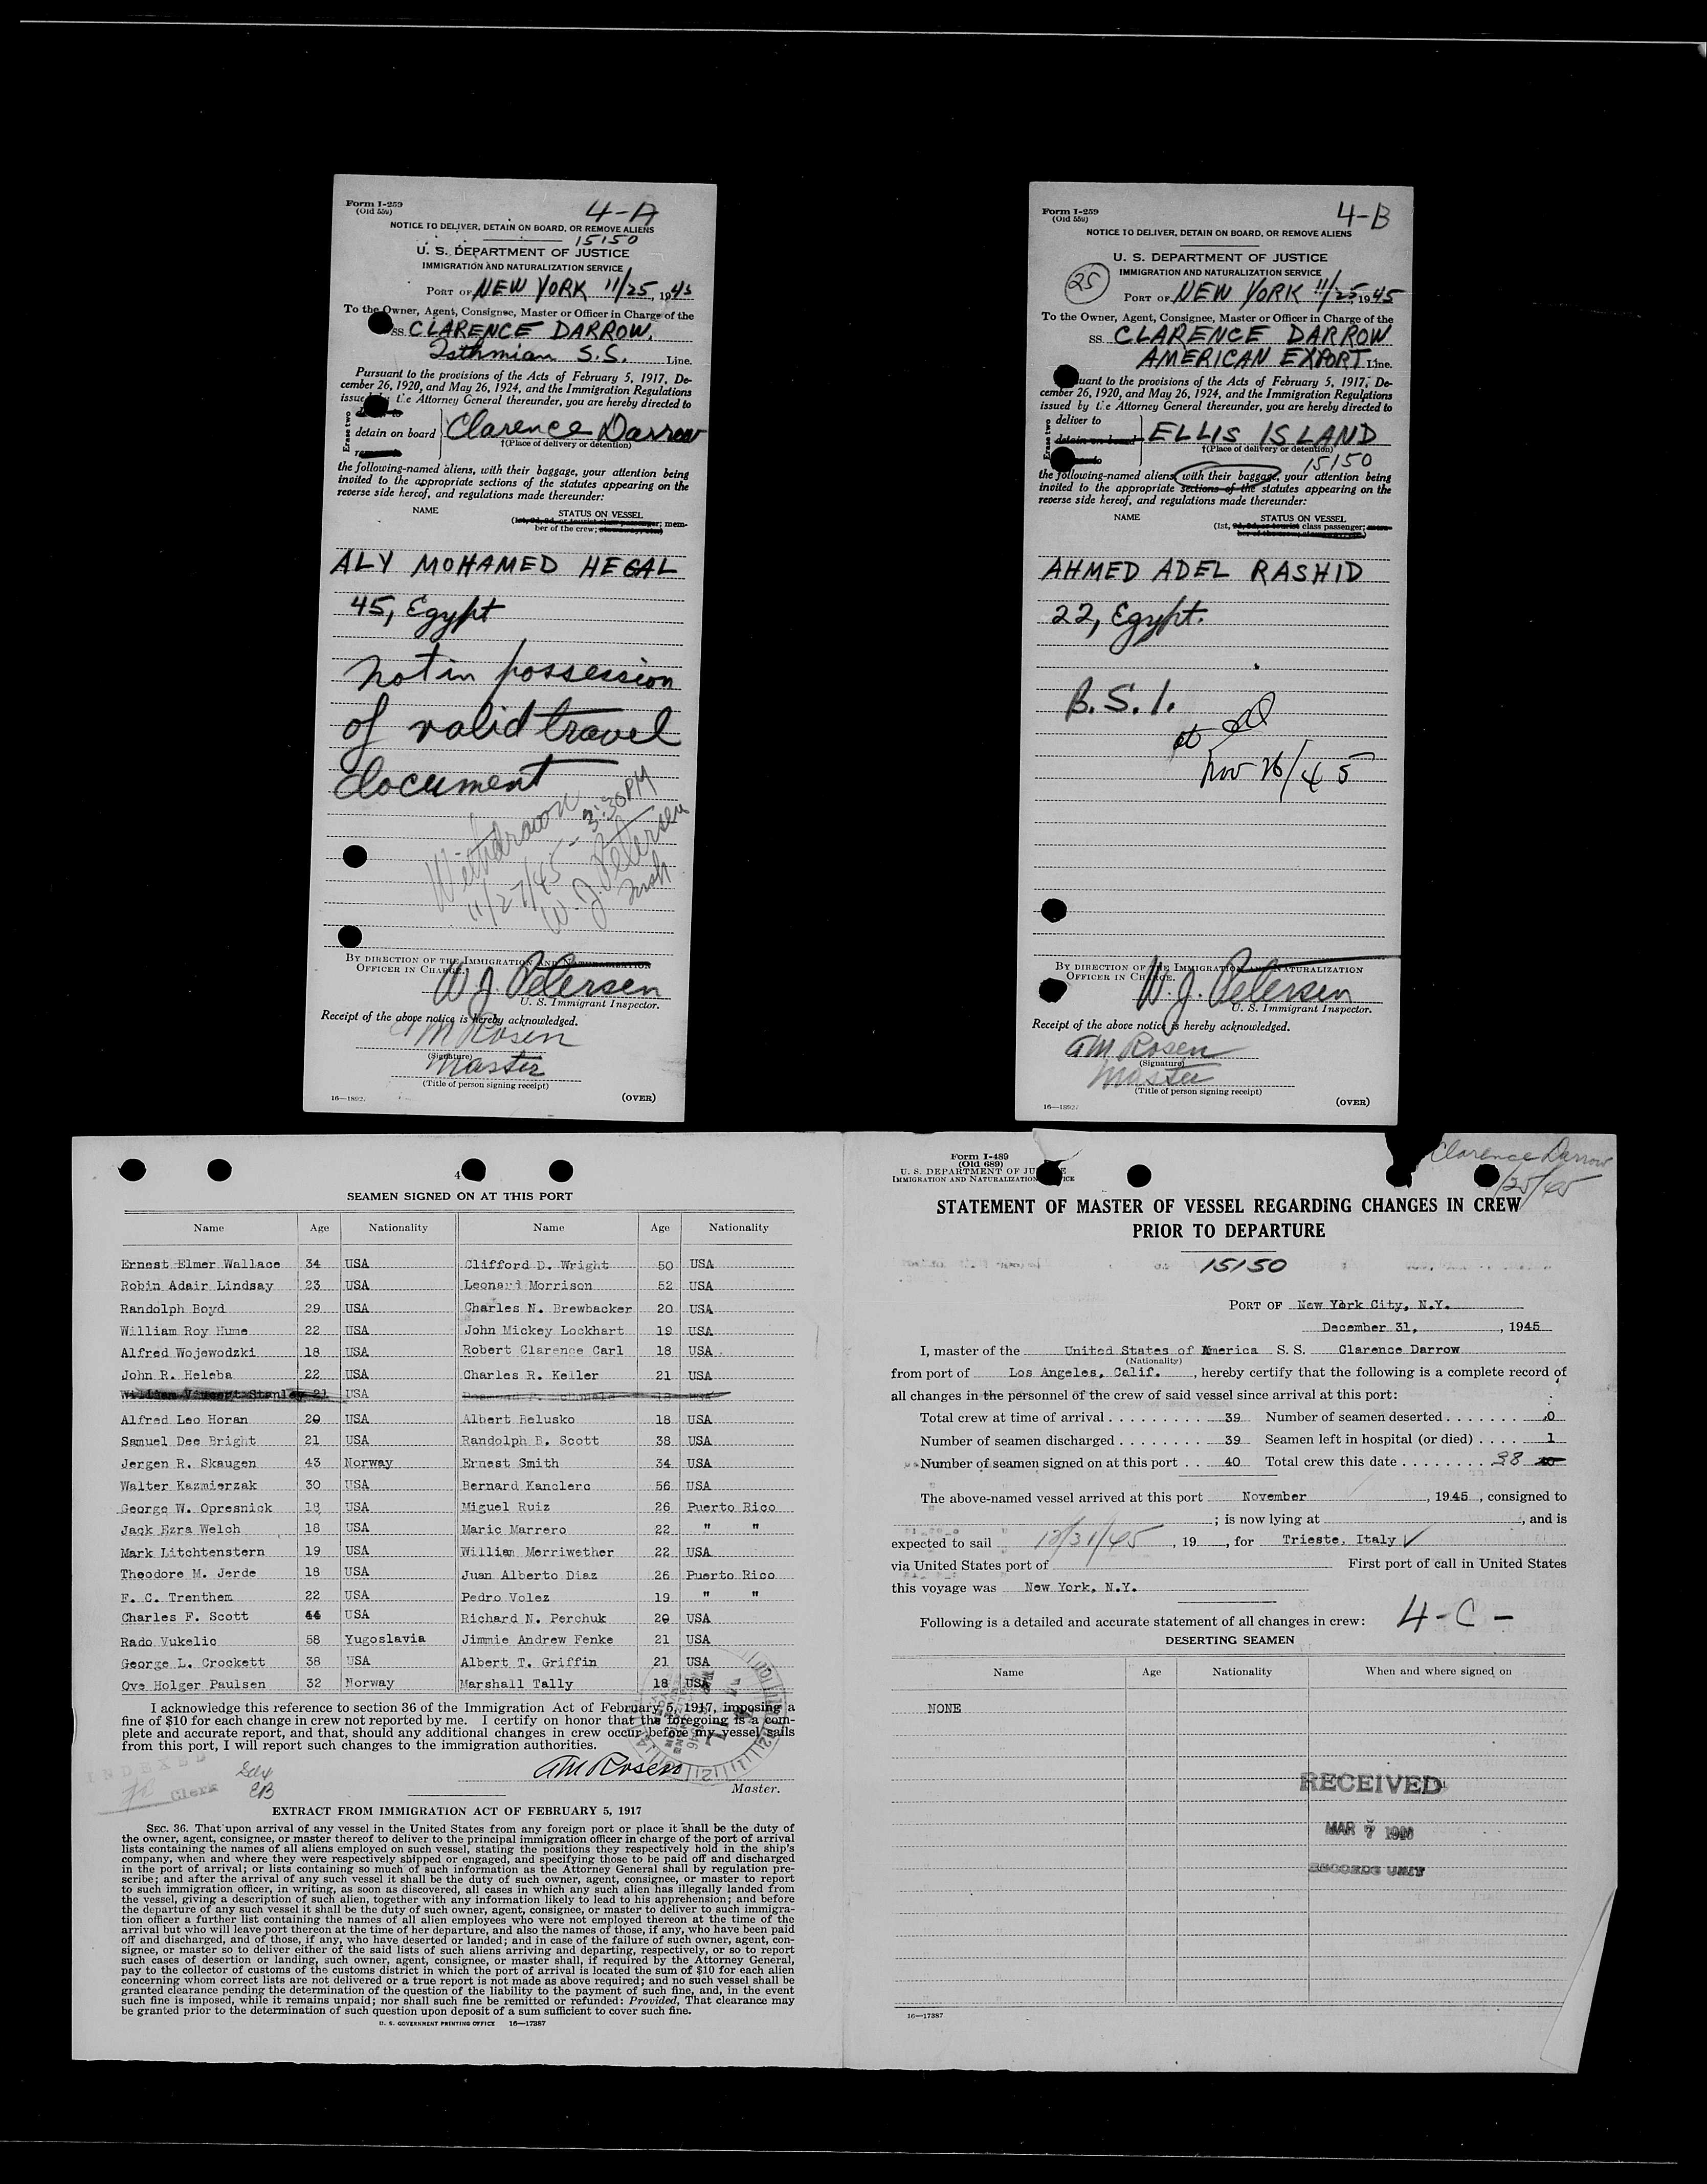 Form I-259
(Old 559)
4-A
NOTICE TO DELIVER, DETAIN ON BOARD, OR REMOVE ALIENS
15150
U. S. DEPARTMENT OF JUSTICE
IMMIGRATION AND NATURALIZATION SERVICE
PORT OF NEW YORK 11/25, 1945
To the Owner, Agent, Consignee, Master or Officer in Charge of the
SS. CLARENCE DARROW,
Isthmian S.S. Line.
Pursuant to the provisions of the Acts of February 5, 1917, De-
cember 26, 1920, and May 26, 1924, and the Immigration Regulations
issued by the Attorney General thereunder, you are hereby directed to
Erase two
detain on board Clarence Darrow
†(Place of delivery or detention)
the following-named aliens, with their baggage, your attention being
invited to the appropriate sections of the statutes appearing on the
reverse side hereof, and regulations made thereunder:
NAME STATUS ON VESSEL
(1st, 2d, 3d, or tourist class passenger; mem-
ber of the crew; stowaway, etc.)
ALY MOHAMED HEGAL
45, Egypt
not in possession
of valid travel
document
Withdrawn
11/27/45 - 3:30 PM
W. J. Petersen
Insp
BY DIRECTION OF THE IMMIGRATION AND NATURALIZATION
OFFICER IN CHARGE.
W. J. Petersen
U. S. Immigrant Inspector.
Receipt of the above notice is hereby acknowledged.
A M Rosen
(Signature)
Master
(Title of person signing receipt)
16—1892
(OVER)
Form I-259
(Old 559)
4-B
NOTICE TO DELIVER, DETAIN ON BOARD, OR REMOVE ALIENS
U. S. DEPARTMENT OF JUSTICE
IMMIGRATION AND NATURALIZATION SERVICE
25
PORT OF NEW YORK 11/25 1945
To the Owner, Agent, Consignee, Master or Officer in Charge of the
SS. CLARENCE DARROW
AMERICAN EXPORT Line.
Pursuant to the provisions of the Acts of February 5, 1917, De-
cember 26, 1920, and May 26, 1924, and the Immigration Regulations
issued by the Attorney General thereunder, you are hereby directed to
Erase two
deliver to
detain on board ELLIS ISLAND
†(Place of delivery or detention)
15150
the following-named aliens, with their baggage, your attention being
invited to the appropriate sections of the statutes appearing on the
reverse side hereof, and regulations made thereunder:
NAME STATUS ON VESSEL
(1st, 2d, 3d, or tourist class passenger; mem-
ber of the crew; stowaway, etc.)
AHMED ADEL RASHID
22, Egypt.
B. S. I.
at
Nov 26/45
BY DIRECTION OF THE IMMIGRATION AND NATURALIZATION
OFFICER IN CHARGE.
W. J. Petersen
U. S. Immigrant Inspector.
Receipt of the above notice is hereby acknowledged.
A M Rosen
(Signature)
Master
(Title of person signing receipt)
16—1892
(OVER)
4
SEAMEN SIGNED ON AT THIS PORT
Name Age Nationality Name Age Nationality
Ernest Elmer Wallace 34 USA Clifford D. Wright 50 USA
Robin Adair Lindsay 23 USA Leonard Morrison 52 USA
Randolph Boyd 29 USA Charles N. Brewbacker 20 USA
William Roy Hume 22 USA John Mickey Lockhart 19 USA
Alfred Wojewodzki 18 USA Robert Clarence Carl 18 USA
John R. Heleba 22 USA Charles R. Keller 21 USA
William Vincent Stanley 21 USA
Alfred Leo Horan 20 USA Albert Belusko 18 USA
Samuel Dee Bright 21 USA Randolph B. Scott 38 USA
Jergen R. Skaugen 43 Norway Ernest Smith 34 USA
Walter Kazmierzak 30 USA Bernard Kanclerc 56 USA
George W. Opresnick 18 USA Miguel Ruiz 26 Puerto Rico
Jack Ezra Welch 18 USA Maric Marrero 22 " "
Mark Litchtenstern 19 USA William Merriwether 22 USA
Theodore M. Jerde 18 USA Juan Alberto Diaz 26 Puerto Rico
F. C. Trenthem 22 USA Pedro Volez 19 " "
Charles F. Scott 44 USA Richard N. Perchuk 20 USA
Rado Vukelic 58 Yugoslavia Jimmie Andrew Fenke 21 USA
George L. Crockett 38 USA Albert T. Griffin 21 USA
Ove Holger Paulsen 32 Norway Marshall Tally 18 USA
I acknowledge this reference to section 36 of the Immigration Act of February 5, 1917, imposing a
fine of $10 for each change in crew not reported by me. I certify on honor that the foregoing is a com-
plete and accurate report, and that, should any additional changes in crew occur before my vessel sails
from this port, I will report such changes to the immigration authorities.
INDEXED
Clerk
AM Rosen
Master.
EXTRACT FROM IMMIGRATION ACT OF FEBRUARY 5, 1917
SEC. 36. That upon arrival of any vessel in the United States from any foreign port or place it shall be the duty of
the owner, agent, consignee, or master thereof to deliver to the principal immigration officer in charge of the port of arrival
lists containing the names of all aliens employed on such vessel, stating the positions they respectively hold in the ship's
company, when and where they were respectively shipped or engaged, and specifying those to be paid off and discharged
in the port of arrival; or lists containing so much of such information as the Attorney General shall by regulation pre-
scribe; and after the arrival of any such vessel it shall be the duty of such owner, agent, consignee, or master to report
to such immigration officer, in writing, as soon as discovered, all cases in which any such alien has illegally landed from
the vessel, giving a description of such alien, together with any information likely to lead to his apprehension; and before
the departure of any such vessel it shall be the duty of such owner, agent, consignee, or master to deliver to such immigra-
tion officer a further list containing the names of all alien employees who were not employed thereon at the time of the
arrival but who will leave port thereon at the time of her departure, and also the names of those, if any, who have been paid
off and discharged, and of those, if any, who have deserted or landed; and in case of the failure of such owner, agent, con-
signee, or master so to deliver either of the said lists of such aliens arriving and departing, respectively, or so to report
such cases of desertion or landing, such owner, agent, consignee, or master shall, if required by the Attorney General,
pay to the collector of customs of the customs district in which the port of arrival is located the sum of $10 for each alien
concerning whom correct lists are not delivered or a true report is not made as above required; and no such vessel shall be
granted clearance pending the determination of the question of the liability to the payment of such fine, and, in the event
such fine is imposed, while it remains unpaid; nor shall such fine be remitted or refunded: Provided, That clearance may
be granted prior to the determination of such question upon deposit of a sum sufficient to cover such fine.
U. S. GOVERNMENT PRINTING OFFICE 16—17387
Form I-489
(Old 689)
U. S. DEPARTMENT OF JUSTICE
IMMIGRATION AND NATURALIZATION SERVICE
Clarence Darrow
/25/45
STATEMENT OF MASTER OF VESSEL REGARDING CHANGES IN CREW
PRIOR TO DEPARTURE
15150
PORT OF New York City, N.Y.
December 31, , 1945
I, master of the United States of America S. S. Clarence Darrow
(Nationality)
from port of Los Angeles, Calif. , hereby certify that the following is a complete record of
all changes in the personnel of the crew of said vessel since arrival at this port:
Total crew at time of arrival . . . . . . . . . 39 Number of seamen deserted . . . . . . . 0
Number of seamen discharged . . . . . . . . 39 Seamen left in hospital (or died) . . . . 1
Number of seamen signed on at this port . . 40 Total crew this date . . . . . . . . 38 40
The above-named vessel arrived at this port November , 1945 , consigned to
; is now lying at , and is
expected to sail 12/31/45 , 19 , for Trieste, Italy ✓
via United States port of First port of call in United States
this voyage was New York, N.Y.
Following is a detailed and accurate statement of all changes in crew: 4-C -
DESERTING SEAMEN
Name Age Nationality When and where signed on
NONE
RECEIVED
MAR 7 1946
RECORDS UNIT
16—17387